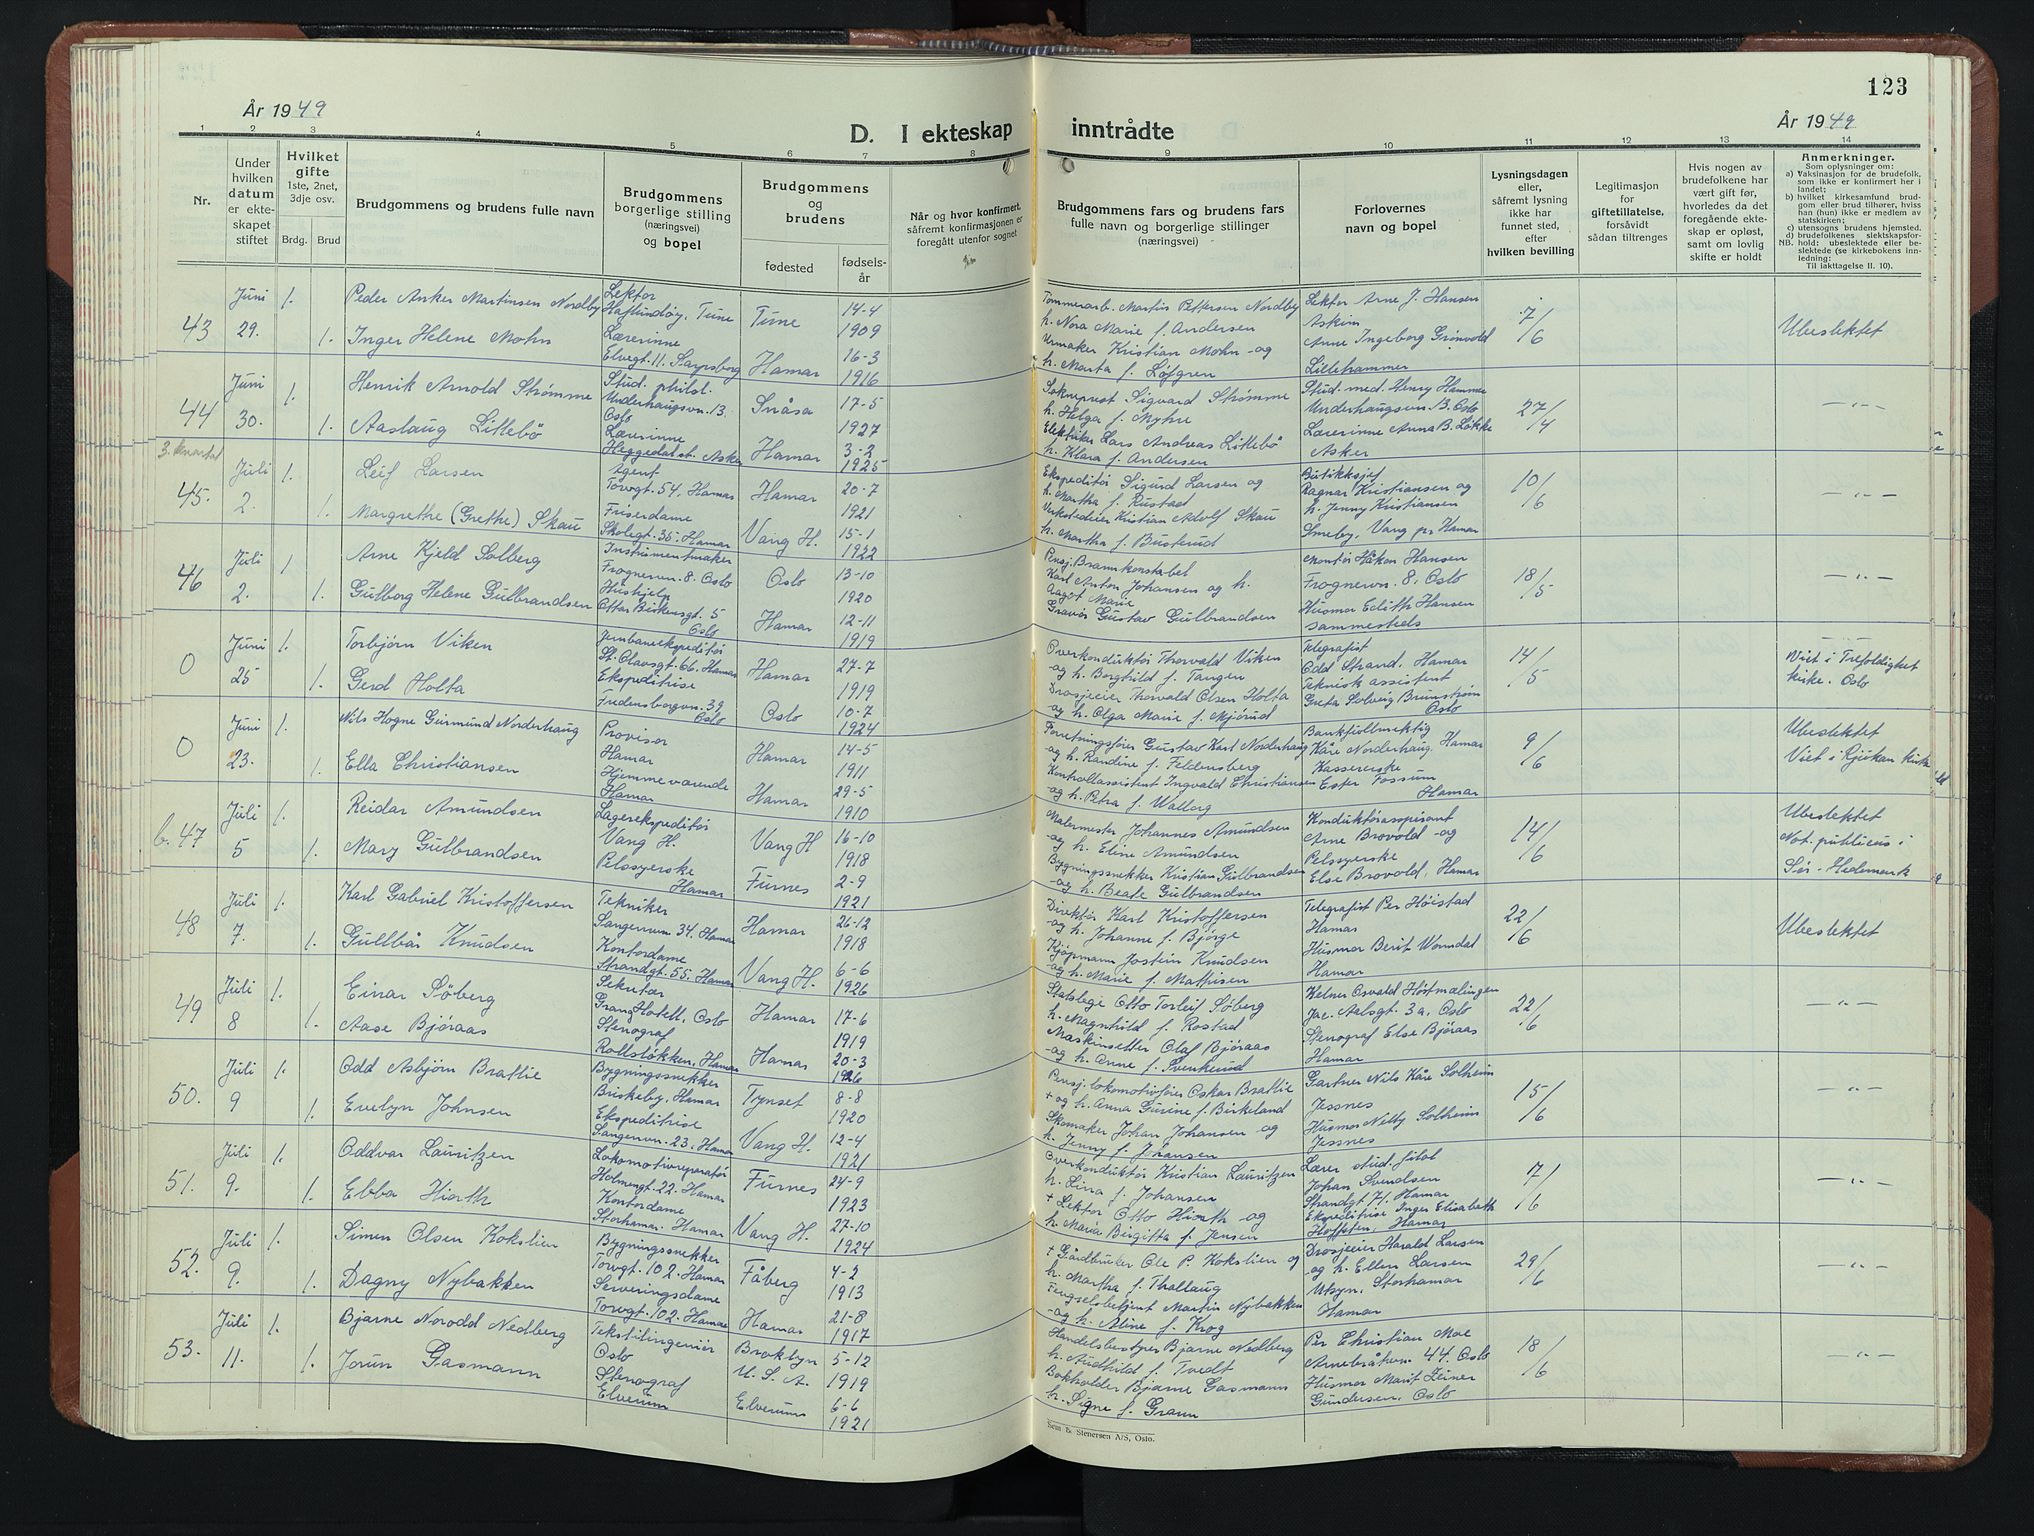 123
År 1949
År 1949
D. I ekteskap inntrådte
1 2 3 4 5 6 7 8 9 10 11 12 13 14
Nr.
Under hvilken datum er ekteskapet stiftet
Hvilket gifte 1ste, 2net, 3dje osv.
Brdg. Brud
Brudgommens og brudens fulle navn
Brudgommens borgerlige stilling (næringsvei) og bopel
Brudgommens og brudens
fødested
fødselsår
Når og hvor konfirmert, såfremt konfirmasjonen er foregått utenfor sognet
Brudgommens fars og brudens fars fulle navn og borgerlige stillinger (næringsvei)
Forlovernes navn og bopel
Lysningsdagen eller, såfremt lysning ikke har funnet sted, efter hvilken bevilling
Legitimasjon for giftetillatelse, forsåvidt sådan tiltrenges
Hvis nogen av brudefolkene har vært gift før, hvorledes da det foregående ekteskap er opløst, samt om lovlig skifte er holdt
Anmerkninger.
Som oplysninger om:
a) Vaksinasjon for de brudefolk, som ikke er konfirmert her i landet;
b) hvilket kirkesamfund brudgom eller brud tilhører, hviss han (hun) ikke er medlem av statskirken;
c) utensogns brudens hjemsted.
d) brudefolkenes slektskapsforhold: ubeslektede eller beslektede (se kirkebokens innledning:
NB.
Til iakttagelse II. 10).
43 Juni 29. 1. Peder Anker Martinsen Nordby Lektor Haflundøy, Tune Tune 14-4 1909 Tømmerarb. Martin Pettersen Nordby h. Nora Marie f. Andersen Lektor Arne J. Hansen Askim 7/6 Ubeslektet
1. Inger Helene Mohn Lærerinne Elvegt. 11. Sarpsborg Hamar 16-3 1916 Urmaker Kristian Mohn og h. Marta f. Løfgren Anne Ingeborg Grønvold Lillehammer
44 Juni 30. 1. Henrik Arnold Strømme Stud. philol. Underhaugsvn. 13 Oslo Snåsa 17-5 1927 Sokneprest Sigvard Strømme h. Helga f. Myhre Stud. med. Henry Hamme Underhaugsvn. 13. Oslo 27/4 -"-
1. Aaslaug Lillebø Lærerinne Heggedal st. Asker Hamar 3-2 1925 Elektriker Lars Andreas Lillebø h. Klara f. Andersen Lærerinne Anna B. Løkke Asker
3. kvartal
45. Juli 2. 1. Leif Larsen Agent Torvgt. 54, Hamar Hamar 20-7 1921 Ekspeditør Sigurd Larsen og h. Martha f. Rustad Butikksjef Ragnar Kristiansen og h. Jenny Kristiansen 10/6 -"-
1. Margrethe (Grethe) Skau Friserdame Skolegt. 35, Hamar Vang H. 15-1 1922 Verkstedeier Kristian Adolf Skau h. Martha f. Busterud Smeby, Vang pr Hamar
46 Juli 2. 1. Arne Kjeld Solberg Instrumentmaker Frognervn. 8. Oslo Oslo 13-10 1920 Pensj. Brannkonstabel Karl Anton Johansen og h. Ragot Marie Montør Håkon Hansen Frognervn. 8, Oslo 18/5 -"-
1. Gulborg Helene Gulbrandsen Hushjelp Ottar Birkensgt. 5 Oslo Hamar 12-11 1919 Gravør Gustav Gulbrandsen Husmor Edith Hansen sammesteds
0 Juni 25 1. Torbjørn Viken Jernbaneekspeditør St. Olavsgt. 66. Hamar Hamar 27-7 1919 Overkonduktør Thorvald Viken og h. Borghild f. Tangen Telegrafist Odd Strand, Hamar 14/5 -"- Viet i Trefoldighetkirke. Oslo
1. Gerd Holta Ekspeditrise Fredensborgvn. 39 Oslo Oslo 10-7 1924 Drosjeeier Thorvald Olsen Holta og h. Olga Marie f. Mjørud Teknisk assistent Greta Solveig Brunstrøm Oslo
0 Juni 23. 1. Nils Hogne Geirmund Norderhaug Provisor Hamar Hamar 14-5 1911 Forretningsfører Gustav Karl Norderhaug og h. Randine f. Feldensberg Bankfullmektig Kåre Norderhaug, Hamar 9/6 Ubeslektet Viet i Rjukan kirke
1. Ella Christiansen Hjemmeværende Hamar Hamar 29-5 1910 Kontrollassistent Ingvald Christiansen og h. Petra f. Walberg Kassererske Ester Fossum Hamar
b. 47 Juli 5 1. Reidar Amundsen Lagerekspeditør Vang H. Vang H 16-10 1918 Malermester Johannes Amundsen og h. Eline Amundsen Konduktøraspirant Arne Brovold og 14/6 Ubeslektet Not. publicus i Sør-Hedemark
1. Mary Gulbrandsen Pelssyerske Hamar Furnes 2-9 1921 Bygningssnekker Kristian Gulbrandsen og h. Beate Gulbrandsen Pelssyerske Else Brovold, Hamar
48 Juli 7. 1. Karl Gabriel Kristoffersen Tekniker Sangenvn 34, Hamar Hamar 26-12 1918 Direktør Karl Kristoffersen og h. Johanne f. Bjørge Telegrafist Per Høistad Hamar 22/6 Ubeslektet
1. Gullbår Knudsen Kontordame Strandgt. 55, Hamar Vang H. 6-6 1926 Kjøpmann Jostein Knudsen og h. Marie f. Mathisen Husmor Berit Wormdal Hamar
49 Juli 8 1. Einar Søberg Sekretær Grand Hotell, Oslo Hamar 17-6 1919 Statslege Otto Torleif Søberg h. Magnhild f. Rostad Kelner Osvald Høstmælingen Jac. Aalsgt. 3a, Oslo 22/6 -"-
1. Aase Bjøraas Stenograf Rollsløkken, Hamar Hamar 20-3 1926 Maskinsetter Olaf Bjøraas og h. Anne f. Svenkerud Stenograf Else Bjøraas Hamar
50. Juli 9 1. Odd Asbjørn Brattlie Bygningssnekker Briskeby, Hamar Tynset 8-8 1920 Pensj. lokomotivfører Oskar Brattlie + og h. Anna Gurine f. Birkeland Gartner Nils Kåre Solheim Jessnes 15/6 -"-
1. Evelyn Johnsen Ekspeditrise Sangenvn. 23, Hamar Vang H. 12-4 1921 Skomaker Johan Johansen og h. Jenny f. Johansen Husmor Nelly Solheim Jessnes
51. Juli 9. 1. Oddvar Lauritzen Lokomotivreparatør Holmengt. 22. Hamar Furnes 24-9 1923 Overkonduktør Kristian Lauritzen h. Lina f. Johansen Lærer stud. filol Johan Svendsen Strandgt. 71, Hamar 7/6 -"-
1. Ebba Hiorth Kontordame Storhamar. Hamar Vang H. 27-10 1924 + Lektor Otto Hiorth og h. Marie Birgitta f. Jensen Ekspeditrise Inger Elisabeth Hoffsten, Hamar
52. Juli 9. 1. Simen Olsen Kokslien Bygningssnekker Torvgt. 102. Hamar Fåberg 4-2 1913 + Gårdbruker Ole P. Kokslien og h. Martha f. Thallaug Drosjeeier Harald Larsen og h. Ellen Larsen 29/6 -"-
1. Dagny Nybakken Serveringsdame Torvgt. 102. Hamar Hamar 21-8 1917 Fengselsbetjent Martin Nybakken og h. Aline f. Krog Utsyn, Storhamar Hamar
53. Juli 11. 1. Bjarne Norodd Nedberg Tekstilingeniør Oslo Broklyn U.S.A. 5-12 1919 Handelsbestyrer Bjarne Nedberg h. Audhild f. Tvedt Per Christian Moe Arnebråtvn. 44. Oslo 18/6 -"-
1. Jorun Gasmann Stenograf Elverum Elverum 6-6 1921 Bokholder Bjarne Gasmann h. Signe f. Gram Husmor Marit Zeiner Gundersen, Oslo
Sem & Stenersen A/S, Oslo.